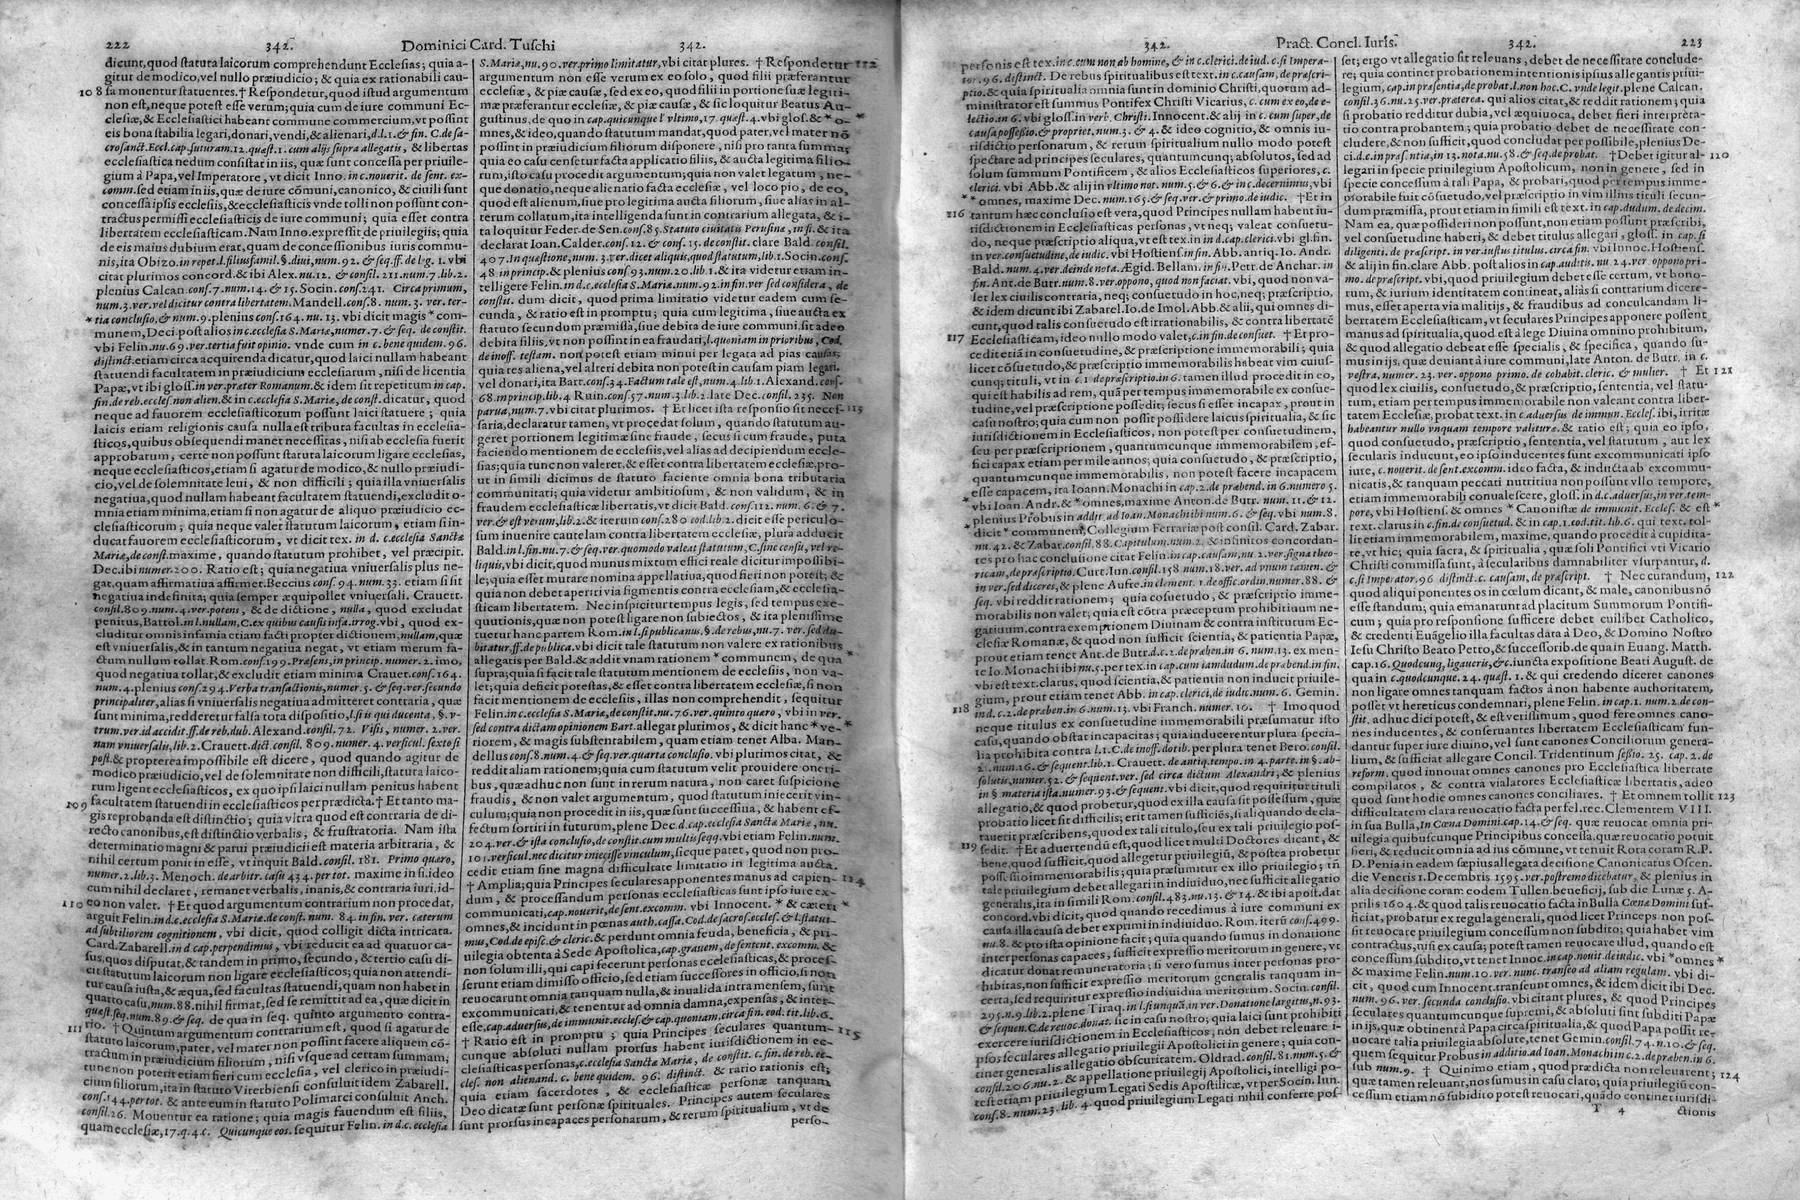 222 342. Dominici Card. Tuſchi 342.
dicunt, quod ſtatura laicorum comprehendunt Eccleſias; quia a-
gitur de modico, vel nullo præiudicio; & quia ex rationabili cau-
108 ſa mouentur ſtatuentes. † Reſpondetur, quod iſtud argumentum
non eſt, neque poteſt eſſe verum; quia cum de iure communi Ec-
cleſiæ, & Eccleſiaſtici habeant commune commercium, vt poſſint
eis bona ſtabilia legari, donari, vendi, & alienari, d.l.1. & fin. C. de ſa-
croſanct. Eccl. cap. futuram. 12. quæſt. 1. cum alijs ſupra allegatis, & libertas
eccleſiaſtica nedum conſiſtat in iis, quæ ſunt conceſſa per priuile-
gium à Papa, vel Imperatore, vt dicit Inno. in c. nouerit. de ſent. ex-
comm. ſed etiam in iis, quæ de iure cōmuni, canonico, & ciuili ſunt
conceſſa ipſis eccleſiis, & eccleſiaſticis vnde tolli non poſſunt con-
tractus permiſſi eccleſiaſticis de iure communi; quia eſſet contra
libertatem eccleſiaſticam. Nam Inno. expreſſit de priuilegiis; quia
de eis maius dubium erat, quam de conceſſionibus iuris commu-
nis, ita Obizo. in repet. l. filiusfamil. §. diui, num. 92. & ſeq. ff. de leg. 1. vbi
citat plurimos concord. & ibi Alex. nu. 12. & conſil. 211. num. 7. lib. 2.
plenius Calcan. conſ. 7. num. 14. & 15. Socin. conſ. 241. Circa primum,
num. 3. ver. vel dicitur contra libertatem. Mandell. conſ. 8. num. 3. ver. ter-
* tia concluſio, & num. 9. plenius conſ. 164. nu. 13. vbi dicit magis * com-
munem, Deci. poſt alios in c. eccleſia S. Mariæ, numer. 7. & ſeq. de conſtit.
vbi Felin. nu. 69. ver. tertia fuit opinio. vnde cum in c. bene quidem. 96.
diſtinct. etiam circa acquirenda dicatur, quod laici nullam habeant
ſtatuendi facultatem in præiudicium eccleſiarum, niſi de licentia
Papæ, vt ibi gloſſ. in ver. præter Romanum. & idem ſit repetitum in cap.
fin. de reb. eccleſ. non alien. & in c. eccleſia S. Mariæ, de conſt. dicatur, quod
neque ad fauorem eccleſiaſticorum poſſunt laici ſtatuere; quia
laicis etiam religionis cauſa nulla eſt tributa facultas in eccleſia-
ſticos, quibus obſequendi manet neceſſitas, niſi ab eccleſia fuerit
approbatum, certè non poſſunt ſtatuta laicorum ligare eccleſias,
neque eccleſiaſticos, etiam ſi agatur de modico, & nullo præiudi-
cio, vel de ſolemnitate leui, & non difficili; quia illa vniuerſalis
negatiua, quod nullam habeant facultatem ſtatuendi, excludit o-
mnia etiam minima, etiam ſi non agatur de aliquo præiudicio ec-
cleſiaſticorum; quia neque valet ſtatutum laicorum, etiam ſi in-
ducat fauorem eccleſiaſticorum, vt dicit tex. in d. c. eccleſia Sanctæ
Mariæ, de conſt. maxime, quando ſtatutum prohibet, vel præcipit.
Dec. ibi numer. 200. Ratio eſt; quia negatiua vniuerſalis plus ne-
gat, quam affirmatiua affirmet. Beccius conſ. 94. num. 33. etiam ſi ſit
negatiua indefinita; quia ſemper æquipollet vniuerſali. Crauett.
conſil. 809. num. 4. ver. potens, & de dictione, nulla, quod excludat
penitus, Battol. in l. nullam, C. ex quibus cauſis infa. irrog. vbi, quod ex-
cludit omnis infamia etiam facti propter dictionem, nullam, quæ
eſt vniuerſalis, & in tantum negatiua negat, vt etiam merum fa-
ctum nullum tollat. Rom. conſ. 199. Præſens, in princip. numer. 2. imo,
quod negatiua tollat, & excludit etiam minima Crauet. conſ. 164.
num. 4. plenius conſ. 294. Verba tranſactionis, numer. 5. & ſeq. ver. ſecundo
principaliter, alias ſi vniuerſalis negatiua admitteret contraria, quæ
ſunt minima, redderetur falſa tota diſpoſitio, l. ſi is qui ducenta, §. v-
trum. per id accidit. ff. de reb. dub. Alexand. conſ. 72. Viſis, numer. 2. ver.
nam vniuerſalis, lib. 2. Crauett. dict. conſil. 809. numer. 4. verſicul. ſexto ſi
poſt. & propterea impoſſibile eſt dicere, quod quando agitur de
modico præiudicio, vel de ſolemnitate non difficili, ſtatuta laico-
rum ligent eccleſias, ex quo ipſi laici nullam penitus habent
109 facultatem ſtatuendi in eccleſiaſticos per prædicta. † Et tanto ma-
gis reprobanda eſt diſtinctio; quia vltra quod eſt contraria de di-
recto canonibus, eſt diſtinctio verbalis, & fruſtratoria. Nam iſta
determinatio magni & parui præiudicii eſt materia arbitraria, &
nihil certum ponit in eſſe, vt inquit Bald. conſil. 181. Primo quæro,
numer. 2. lib. 3. Menoch. de arbitr. caſu 434. per tot. maxime in ſi. ideo
cum nihil declaret, remanet verbalis, inanis, & contraria iuri, id-
110 eo non valet. † Et quod argumentum contrarium non procedat,
arguit Felin. in d. c. eccleſia S. Mariæ. de conſt. num. 84. in fin. ver. cæterum
ad ſubtiliorem cognitionem, vbi dicit, quod colligit dicta intricata.
Card. Zabarell. in d. cap. perpendimus, vbi reducit ea ad quatuor ca-
ſus, quos diſputat, & tandem in primo, ſecundo, & tertio caſu di-
cit ſtatutum laicorum non ligare eccleſiaſticos; quia non attendi-
tur cauſa iuſta, & æqua, ſed facultas ſtatuendi, quam non habet in
quarto caſu, num. 88. nihil firmat, ſed ſe remittit ad ea, quæ dicit in
quæſt. ſeq. num. 89. & ſeq. de qua in ſeq. quinto argumento contra-
111 rio. † Quintum argumentum contrarium eſt, quod ſi agatur de
ſtatuto laicorum, pater, vel mater non poſſint facere aliquem cō-
tractum in præiudicium filiorum, niſi vſque ad certam ſummam;
tunc non poterit etiam fieri cum eccleſia, vel clerico in præiudi-
cium filiorum, ita in ſtatuto Viterbienſi conſuluit idem Zabarell.
conſ. 144. per tot. & ante eum in ſtatuto Polimarci conſuluit Anch.
conſil. 26. Mouentur ea ratione; quia magis fauendum eſt filiis,
quam eccleſiæ, 17. q. 4. c. Quicunque eos. ſequitur Felin. in d. c. eccleſia
S. Mariæ, nu. 90. ver. primo limitatur, vbi citat plures. † Reſpondetur 112
argumentum non eſſe verum ex eo ſolo, quod filii præferantur
eccleſiæ, & piæ cauſæ, ſed ex eo, quod filii in portione ſuæ legiti-
mæ præferantur eccleſiæ, & piæ cauſæ, & ſic loquitur Beatus Au-
guſtinus, de quo in cap. quicunque l' vltimo, 17. quæſt. 4. vbi gloſ. & * o- *
mnes, & ideo, quando ſtatutum mandat, quod pater, vel mater nō
poſſint in præiudicium filiorum diſponere, niſi pro tanta ſumma;
quia eo caſu cenſetur facta applicatio filiis, & aucta legitima filio-
rum, iſto caſu procedit argumentum; quia non valet legatum, ne-
que donatio, neque alienatio facta eccleſiæ, vel loco pio, de eo,
quod eſt alienum, ſiue pro legitima aucta filiorum, ſiue alias in al-
terum collatum, ita intelligenda ſunt in contrarium allegata, & i-
ta loquitur Feder. de Sen. conſ. 85. Statuto ciuitatis Peruſinæ, in fi. & ita
declarat Ioan. Calder. conſ. 12. & conſ. 15. de conſtit. clare Bald. conſil.
407. In quæſtione, num. 3. ver. dicet aliquis, quod ſtatutum, lib. 1. Socin. conſ.
48. in princip. & plenius conſ. 93. num. 20. lib. 1. & ita videtur etiam in-
telligere Felin. in d. c. eccleſia S. Mariæ. num. 92. in fin. ver. ſed conſidera, de
conſtit. dum dicit, quod prima limitatio videtur eadem cum ſe-
cunda, & ratio eſt in promptu; quia cum legitima, ſiue aucta ex
ſtatuto ſecundum præmiſſa, ſiue debita de iure communi. ſit adeo
debita filiis, vt non poſſint in ea fraudari, l. quoniam in prioribus, Cod.
de inoff. teſtam. non poteſt etiam minui per legata ad pias cauſas;
quia res aliena, vel alteri debita non poteſt in cauſam piam legari.
vel donari, ita Barr. conſ. 34. Factum tale eſt, num. 4. lib. 1. Alexand. conſ.
68. in princip. lib. 4. Ruin. conſ. 57. num. 3. lib. 2. late Dec. conſil. 235. Non
parua, num. 7. vbi citat plurimos. † Et licet iſta reſponſio ſit neceſ- 113
ſaria, declaratur tamen, vt procedat ſolum, quando ſtatutum au-
geret portionem legitimæ ſine fraude, ſecus ſi cum fraude, puta
faciendo mentionem de eccleſiis, vel alias ad decipiendum eccle-
ſias; quia tunc non valeret. & eſſet contra libertatem eccleſiæ, pro-
ut in ſimili dicimus de ſtatuto faciente omnia bona tributaria
communitati; quia videtur ambitioſum, & non validum, & in
fraudem eccleſiaſticæ libertatis, vt dicit Bald. conſ. 112. num. 6. & 7.
ver. & eſt verum, lib. 2. & iterum conſ. 280 eod. lib. 2. dicit eſſe periculo-
ſum inuenire cautelam contra libertatem eccleſiæ, plura adducit
Bald. in l. fin. nu. 7. & ſeq. ver. quomodo valeat ſtatutum, C. ſine cenſu, vel re-
liquis, vbi dicit, quod munus mixtum effici reale dicitur impoſſibi-
le; quia eſſet mutare nomina appellatiua, quod fieri non poteſt; &
quia non debet aperiri via figmentis contra eccleſiam, & eccleſia-
ſticam libertatem. Nec inſpicitur tempus legis, ſed tempus exe-
quutionis, quæ non poteſt ligare non ſubiectos, & ita pleniſſime
tuetur hanc partem Rom. in l. ſi publicanus, §. de rebus, nu. 7. ver. ſed du-
bitatur, ff. de publica. vbi dicit tale ſtatutum non valere ex rationibus
allegatis per Bald. & addit vnam rationem * communem, de qua *
ſupra; quia ſi facit tale ſtatutum mentionem de eccleſiis, non va-
let; quia deficit poteſtas, & eſſet contra libertatem eccleſiæ, ſi non
facit mentionem de eccleſiis, illas non comprehendit, ſequitur
Felin. in c. eccleſia S. Mariæ, de conſtit. nu. 76. ver. quinto quæro, vbi in ver.
ſed contra dictam opinionem Bart. allegat plurimos, & dicit hanc * ve- *
riorem, & magis ſubſtentabilem, quam etiam tenet Alba. Man-
dellus conſ. 8. num. 4. & ſeq. ver. quarta concluſio. vbi plurimos citat, &
reddit aliam rationem; quia cum ſtatutum velit prouidere oneri-
bus, quæ adhuc non ſunt in rerum natura, non caret ſuſpicione
fraudis, & non valet argumentum, quod ſtatutum iniecerit vin-
culum; quia non procedit in iis, quæ ſunt ſucceſſiua, & habent ef-
fectum ſortiri in futurum, plene Dec. d. cap. eccleſia Sanctæ Mariæ, nu.
204. ver. & iſta concluſio, de conſtit. cum multis ſeqq. vbi etiam Felin. num.
101. verſicul. nec dicitur inieciſſe vinculum, ſicque patet, quod non pro-
cedit etiam ſine magna difficultate limitatio in legitima aucta.
† Amplia; quia Principes ſeculares apponentes manus ad capien- 114
dum, & proceſſandum perſonas eccleſiaſticas ſunt ipſo iure ex-
communicati, cap. nouerit, de ſent. excomm. vbi Innocent. * & cæteri *
omnes, & incidunt in pœnas auth. caſſa. Cod. de ſacroſ. eccleſ. & l. ſtatui-
mus, Cod. de epiſc. & cleric. & perdunt omnia feuda, beneficia, & pri-
uilegia obtenta à Sede Apoſtolica, cap. grauem, de ſentent. excomm. &
non ſolum illi, qui capi fecerunt perſonas eccleſiaſticas, & proceſ-
ſent etiam dimiſſo officio, ſed etiam ſucceſſores in officio, ſi non
reuocarunt omnia tanquam nulla, & inualida intra menſem, ſunt
excommunicati, & tenentur ad omnia damna, expenſas, & inter-
eſſe, cap. aduerſus, de immunit. eccleſ. & cap. quoniam, circa fin. eod. tit. lib. 6.
† Ratio eſt in promptu; quia Principes ſeculares quantum- 115
cunque abſoluti nullam prorſus habent iuriſdictionem in ec-
cleſiaſticas perſonas, c. eccleſia Sanctæ Mariæ, de conſtit. c. fin. de reb. ec-
cleſ. non alienand. c. bene quidem. 96. diſtinct. & ratio rationis eſt;
quia etiam ſacerdotes, & eccleſiaſticæ perſonæ tanquam
Deo dicatæ ſunt perſonæ ſpirituales. Principes autem ſeculares
ſunt prorſus incapaces perſonarum, & rerum ſpiritualium, vt de
perſo-
342. Pract. Concl. Iuris. 342. 223
perſonis eſt tex. in c. cum non ab homine, & in c. clerici. de iud. c. ſi Impera-
tor. 96. diſtinct. De rebus ſpiritualibus eſt text. in c. cauſam, de præſcri-
ptio. & quia ſpiritualia omnia ſunt in dominio Chriſti, quorum ad-
miniſtrator eſt ſummus Pontifex Chriſti Vicarius, c. cum ex eo, de e-
lectio. in 6. vbi gloſſ. in verb. Chriſti. Innocent. & alij in c. cum ſuper, de
cauſa poſſeſſio. & propriet. num. 3. & 4. & ideo cognitio, & omnis iu-
riſdictio perſonarum, & rerum ſpiritualium nullo modo poteſt
ſpectare ad principes ſeculares, quantumcunq; abſolutos, ſed ad
ſolum ſummum Pontificem, & alios Eccleſiaſticos ſuperiores, c.
clerici. vbi Abb. & alij in vltimo not. num. 5. & 6. & in c. decernimus, vbi
* * omnes, maxime Dec. num. 165. & ſeq. ver. & primo. de iudic. † Et in
116 tantum hæc concluſio eſt vera, quod Principes nullam habent iu-
riſdictionem in Eccleſiaſticas perſonas, vt neq; valeat conſuetu-
do, neque præſcriptio aliqua, vt eſt tex. in d. cap. clerici. vbi gl. fin.
in ver. conſuetudine, de iudic. vbi Hoſtienſ. in fin. Abb. antiq. Io. Andr.
Bald. num. 4. ver. deinde nota. Ægid. Bellam. in fin. Petr. de Anchar. in
fin. Ant. de Butr. num. 8. ver. oppono, quod non faciat. vbi, quod non va-
let lex ciuilis contraria, neq; conſuetudo in hoc, neq; præſcriptio,
& idem dicunt ibi Zabarel. Io. de Imol. Abb. & alii, qui omnes di-
cunt, quod talis conſuetudo eſt irrationabilis, & contra libertatē
117 Eccleſiaſticam, ideo nullo modo valet, c. in fin. de conſuet. † Et pro-
cedit etiā in conſuetudine, & præſcriptione immemorabili; quia
licet cōſuetudo, & præſcriptio immemorabilis habeat vim cuiuſ-
cunq; tituli, vt in c. 1 de præſcriptio. in 6. tamen illud procedit in eo,
qui eſt habilis ad rem, quā per tempus immemorabile ex conſue-
tudine, vel præſcriptione poſſedit; ſecus ſi eſſet incapax, prout in
caſu noſtro; quia cum non poſſit poſſidere laicus ſpiritualia, & ſic
iuriſdictionem in Eccleſiaſticos, non poteſt per conſuetudinem,
ſeu per præſcriptionem, quantumcunque immemorabilem, ef-
fici capax etiam per mile annos; quia conſuetudo, & præſcriptio,
quantumcunque immemorabilis, non poteſt facere incapacem
eſſe capacem, ita Ioann. Monachi in cap. 2. de præbend. in 6. numero 5.
* vbi Ioan. Andr. & * omnes, maxime Anton. de Butr. num. 11. & 12.
plenius Probus in addit. ad Ioan. Monachi ibi num. 6. & ſeq. vbi num. 8.
* dicit * communem, Collegium Ferrariæ poſt conſil. Card. Zabar.
nu. 42. & Zabar. conſil. 88. Capitulum. num. 2. & infinitos concordan-
tes pro hac concluſione citat Felin. in cap. cauſam, nu. 2. ver. ſigna theo-
ricam, de præſcriptio. Curt. Iun. conſil. 158. num. 18. ver. ad vnum tamen. &
in ver. ſed diceres, & plene Aufre. in clement. 1. de offic. ordin. numer. 88. &
ſeq. vbi reddit rationem; quia coſuetudo, & præſcriptio imme-
morabilis non valet; quia eſſet cōtra præceptum prohibitiuum ne-
gatiuum. contra exemptionem Diuinam & contra inſtitutum Ec-
cleſiæ Romanæ, & quod non ſufficit ſcientia, & patientia Papæ,
prout etiam tenet Ant. de Butr. d. c. 2. de præben. in 6. num. 13. ex men-
te Io. Monachi ibi nu. 5. per tex. in cap. cum iamdudum. de præbend. in fin.
vbi eſt text. clarus, quod ſcientia, & patientia non inducit priuile-
gium, prout etiam tenet Abb. in cap. clerici, de iudic. num. 6. Gemin.
118 ind. c. 2. de præben. in 6. num. 13. vbi Franch. numer. 10. † Imo quod
neque titulus ex conſuetudine immemorabili præſumatur iſto
caſu, quando obſtat incapacitas; quia inducerentur plura ſpecia-
lia prohibita contra l. 1. C. de inoff. dotib. per plura tenet Bero. conſil.
21. num. 16. & ſequent. lib. 1. Crauett. de antiq. tempo. in 4. parte. in §. ab-
ſolutis, numer. 52. & ſequent. ver. ſed circa dictum Alexandri, & plenius
in § materia iſta. numer. 93. & ſequent. vbi, quod requiritur tituli
allegatio, & quod probetur, quod ex illa cauſa ſit poſſeſſum, quæ
probatio licet ſit difficilis; erit tamen ſufficiēs, ſi aliquando decla-
rauerit præſcribens, quod ex tali titulo, ſeu ex tali priuilegio poſ-
119 ſedit. † Et aduertendū eſt, quod licet multi Doctores dicant, &
bene, quod ſufficit, quod allegetur priuilegiū, & poſtea probetur
poſſeſſio immemorabilis; quia præſumitur ex illo priuilegio; tñ
tale priuilegium debet allegari in indiuiduo, nec ſufficit allegatio
generalis, ita in ſimili Rom. conſil. 483. nu. 13. & 14. & ibi apoſt. dat
concord. vbi dicit, quod quando recedimus à iure communi ex
cauſa illa cauſa debet exprimi in indiuiduo. Rom. iterū conſ. 499.
nu. 8. & pro iſta opinione facit; quia quando ſumus in donatione
inter perſonas capaces, ſufficit expreſſio meritorum in genere, vt
dicatur donat remuneratoria; ſi vero ſumus inter perſonas pro-
hibitas, non ſufficit expreſſio meritorum generalis tanquam in-
certa, ſed requiritur expreſſio indiuidua meritorum. Socin. conſil.
295. n. 9. lib. 2. plene Tiraq. in l. ſi unquā, in ver. Donatione largitus, n. 93.
& ſequen. C. de reuoc. donat. ſic in caſu noſtro; quia laici ſunt prohibiti
exercere iuriſdictionem in Eccleſiaſticos, nō debet releuare i-
pſos ſeculares allegatio priuilegii Apoſtolici in genere; quia con-
tineret allegatio obſcuritatem. Oldrad. conſil. 81. num. 5. &
conſil. 206. nu. 2. & appellatione priuilegij Apoſtolici, intelligi po-
teſt etiam priuilegium Legati Sedis Apoſtolicæ, vt per Socin. Iun.
conſ. 8. num. 23. lib. 4. quod priuilegium Legati nihil conferre poſ-
ſet; ergo vt allegatio ſit releuans, debet de neceſſitate conclude-
re; quia continet probationem intentionis ipſius allegantis priui-
legium, cap. in præſentia, de probat. l. non hoc. C. vnde legit. plene Calcan.
conſil. 36. nu. 25. ver. præterea. qui alios citat, & reddit rationem; quia
ſi probatio redditur dubia, vel æquiuoca, debet fieri interpreta-
tio contra probantem; quia probatio debet de neceſſitate con-
cludere, & non ſufficit, quod concludat per poſſibile, plenius De-
ci. d. c. in præſentia, in 13. nota. nu. 58. & ſeq. de probat. † Debet igitur al- 120
legari in ſpecie priuilegium Apoſtolicum, non in genere, ſed in
ſpecie conceſſum à tali Papa, & probari, quod per tempus imme-
morabile fuit cōſuetudo, vel præſcriptio in vim illius tituli ſecun-
dum præmiſſa, prout etiam in ſimili eſt text. in cap. dudum. de decim.
Nam ea, quæ poſſideri non poſſunt, non etiam poſſunt præſcribi,
vel conſuetudine haberi, & debet titulus allegari, gloſſ. in cap. ſi
diligenti. de præſcript. in ver. iuſtus titulus. circa fin. vbi Innoc. Hoſtienſ.
& alij in fin. clare Abb. poſt alios in cap. auditis. nu. 24. ver. oppono pri-
mo. de præſcript. vbi, quod priuilegium debet eſſe certum, vt bono-
rum, & iurium identitatem contineat, alias ſi contrarium dicere-
mus, eſſet aperta via malitijs, & fraudibus ad conculcandam li-
bertatem Eccleſiaſticam, vt ſeculares Principes apponere poſſent
manus ad ſpiritualia, quod eſt à lege Diuina omnino prohibitum,
& quod allegatio debeat eſſe ſpecialis, & ſpecifica, quando ſu-
mus in ijs, quæ deuiant à iure communi, late Anton. de Butr. in c.
veſtra, numer. 23. ver. oppono primo. de cohabit. cleric. & mulier. † Et 121
quod lex ciuilis, conſuetudo, & præſcriptio, ſententia, vel ſtatu-
tum, etiam per tempus immemorabile non valeant contra liber-
tatem Eccleſiæ, probat text. in c. aduerſus de immun. Eccleſ. ibi, irritæ
habeantur nullo vnquam tempore valituræ. & ratio eſt; quia eo ipſo,
quod conſuetudo, præſcriptio, ſententia, vel ſtatutum, aut lex
ſecularis inducunt, eo ipſo inducentes ſunt excommunicati ipſo
iure, c. nouerit. de ſent. excomm. ideo facta, & inducta ab excommu-
nicatis, & tanquam peccati nutritiua non poſſunt vllo tempore,
etiam immemorabili conualeſcere, gloſſ. in d. c. aduerſus, in ver. tem-
pore, vbi Hoſtienſ. & omnes * Canoniſtæ de immunit. Eccleſ. & eſt *
text. clarus in c. fin. de conſuetud. & in cap. 1. eod. tit. lib. 6. qui text. tol-
lit etiam immemorabilem, maxime, quando procedit à cupidita-
te, vt hic; quia ſacra, & ſpiritualia, quæ ſoli Pontifici vti Vicario
Chriſti commiſſa ſunt, à ſecularibus damnabiliter vſurpantur, d.
c. ſi Imperator. 96. diſtinct. c. cauſam, de præſcript. † Nec curandum, 122
quod aliqui ponentes os in cœlum dicant, & male, canonibus nō
eſſe ſtandum; quia emanatunt ad placitum Summorum Pontifi-
cum; quia pro reſponſione ſufficere debet cuilibet Catholico,
& credenti Euāgelio illa facultas data à Deo, & Domino Noſtro
Ieſu Chriſto Beato Petro, & ſucceſſorib. de qua in Euang. Matth.
cap. 16. Quodcunq; ligaueris, &c. iuncta expoſitione Beati Auguſt. de
qua in c. quodcunque. 24. quæſt. 1. & qui credendo diceret canones
non ligare omnes tanquam factos à non habente authoritatem,
poſſet vt hereticus condemnari, plene Felin. in cap. 1. num. 2. de con-
ſtit. adhuc dici poteſt, & eſt veriſſimum, quod fere omnes cano-
nes inducentes, & conſeruantes libertatem Eccleſiaſticam fun-
dantur ſuper iure diuino, vel ſunt canones Conciliorum genera-
lium, & ſufficiat allegare Concil. Tridentinum ſeſſio. 25. cap. 2. de
reform. quod innouat omnes canones pro Eccleſiaſtica libertate
compilatos, & contra violatores Eccleſiaſticæ libertatis, adeo
quod ſunt hodie omnes canones conciliares. † Et omnem tollit 123
difficultatem clara reuocatio facta per fel. rec. Clementem VIII.
in ſua Bulla, In Cœna Domini. cap. 14. & ſeq. quæ reuocat omnia pri-
uilegia quibuſcunque Principibus conceſſa. quæ reuocatio potuit
fieri, & reducit omnia ad ius cōmune, vt tenuit Rota coram R. P.
D. Penia in eadem ſæpius allegata deciſione Canonicatus Oſcen.
die Veneris 1. Decembris 1595. ver. poſtremo dicebatur, & plenius in
alia deciſione coram eodem Tullen. beneficij, ſub die Lunæ 5. A-
prilis 1604. & quod talis reuocatio facta in Bulla Cœnæ Domini ſuf-
ficiat, probatur ex regula generali, quod licet Princeps non poſ-
ſit reuocare priuilegium conceſſum non ſubdito; quia habet vim
contractus, niſi ex cauſa; poteſt tamen reuocare illud, quando eſt
conceſſum ſubdito, vt tenet Innoc. in cap. nouit. de iudic. vbi * omnes *
& maxime Felin. num. 10. ver. nunc. tranſeo ad aliam regulam. vbi di-
cit, quod cum Innocent. tranſeunt omnes, & idem dicit ibi Dec.
num. 96. ver. ſecunda concluſio. vbi citant plures, & quod Principes
ſeculares quantumcunque ſupremi, & abſoluti ſint ſubditi Papæ
in ijs, quæ obtinent à Papa circa ſpiritualia, & quod Papa poſſit re-
uocare talia priuilegia abſolute, tenet Gemin. conſil. 74. n. 10. & ſeq.
quem ſequitur Probus in additio. ad Ioan. Monachi in c. 2. de præben. in 6.
ſub num. 9. † Quinimo etiam, quod prædicta non releuarent; 124
quæ tamen releuant, nos ſumus in caſu claro; quia priuilegiū con-
ceſſum etiam nō ſubdito poteſt reuocari, quādo continet iuriſdi-
T 4 ctionis